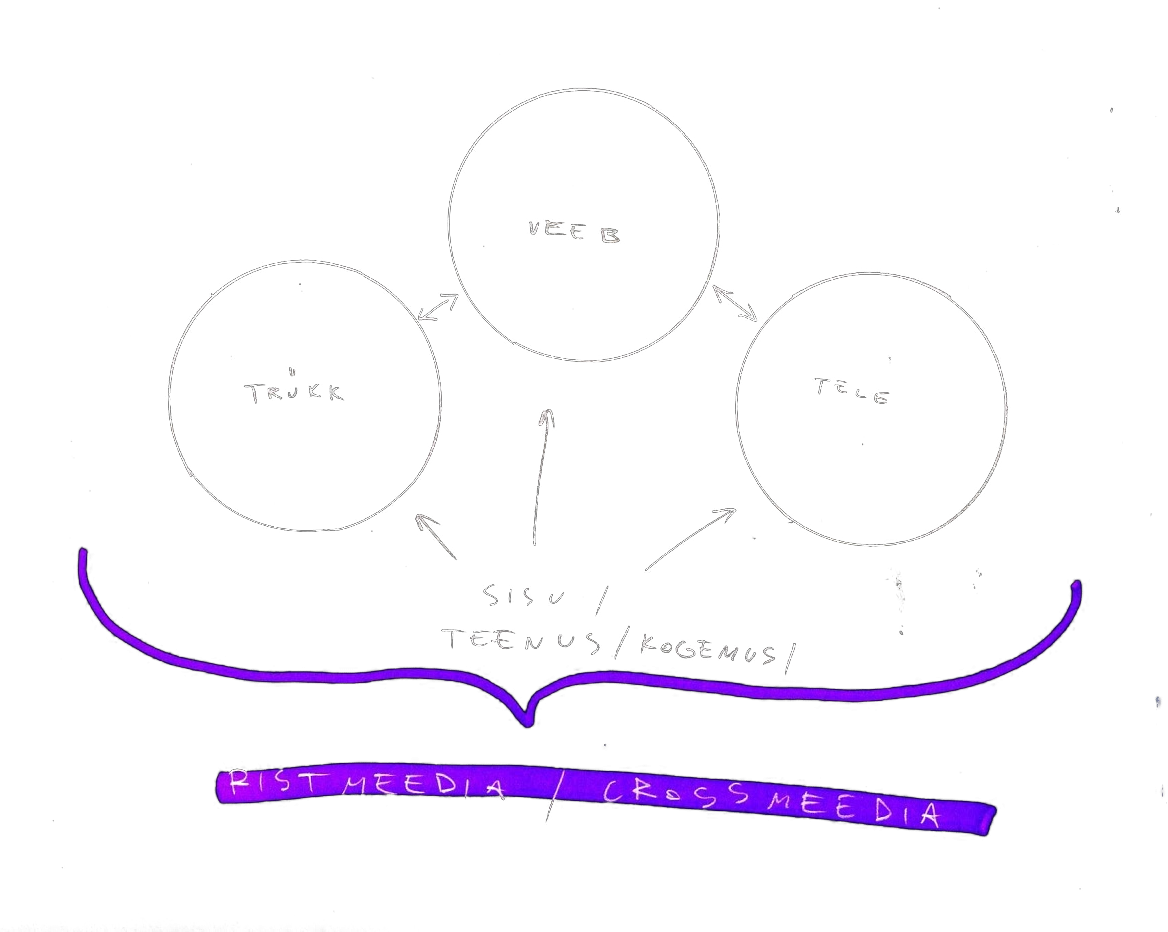 VEEB
TRÜKK
TELE
SISU /
TEENUS / KOGEMUS /
RISTMEEDIA / CROSSMEEDIA